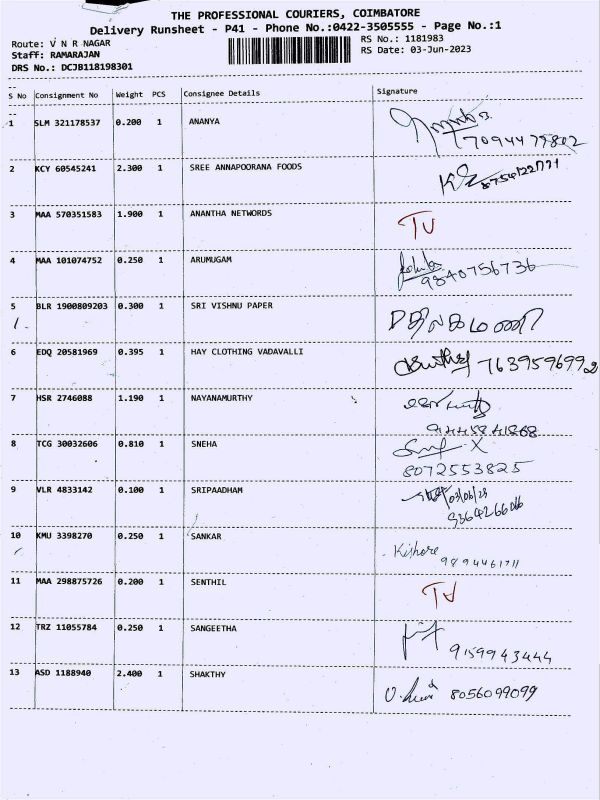 THE PROFESSIONAL COURIERS, COIMBATORE
Delivery Runsheet - P41 - Phone No.:0422-3505555 - Page No.:1
Route: V N R NAGAR RS No.: 1181983
Staff: RAMARAJAN RS Date: 03-Jun-2023
DRS No.: DCJB118198301
S No Consignment No Weight PCS Consignee Details Signature
1 SLM 321178537 0.200 1 ANANYA
2 KCY 60545241 2.300 1 SREE ANNAPOORANA FOODS
3 MAA 570351583 1.900 1 ANANTHA NETWORDS
4 MAA 101074752 0.250 1 ARUMUGAM
9840756736
5 BLR 1900809203 0.300 1 SRI VISHNU PAPER
6 EDQ 20581969 0.395 1 HAY CLOTHING VADAVALLI
7639596992
7 HSR 2746088 1.190 1 NAYANAMURTHY
8 TCG 30032606 0.810 1 SNEHA
8072553825
9 VLR 4833142 0.100 1 SRIPAADHAM
03/06/23
9364266066
10 KMU 3398270 0.250 1 SANKAR Kishore
9894461711
11 MAA 298875726 0.200 1 SENTHIL
12 TRZ 11055784 0.250 1 SANGEETHA
9159943444
13 ASD 1188940 2.400 1 SHAKTHY
8056099099